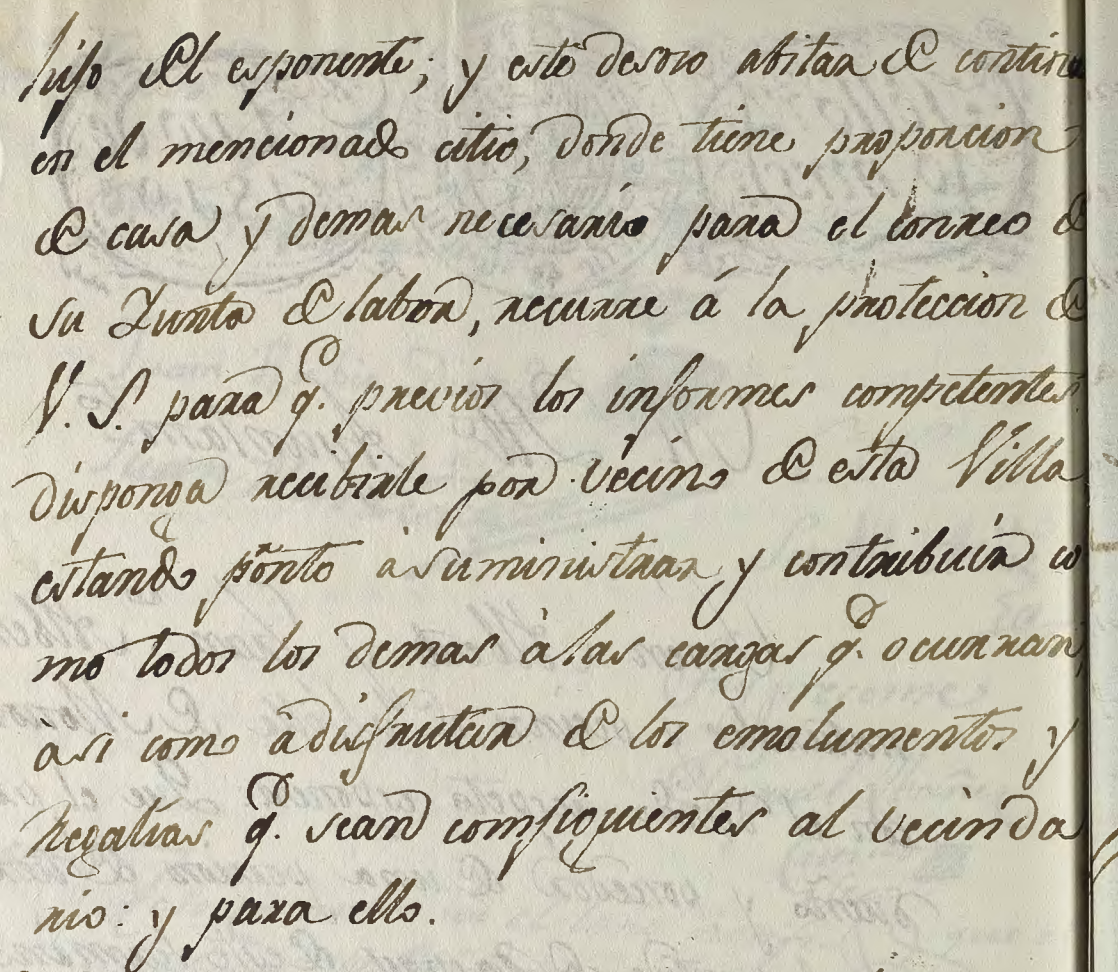 hijo del esponente; y este desoso abitar de continu
en el mencionado citio, donde tiene proporcion
de casa y demas necesario para el correo de
su Junta de labor, recurre á la proteccion de
V. S. para q. previos los informes competentes
disponga recibirle por vecino de esta Villa
estando pronto a suministrar, y contribuir co
mo todos los demas à las cargas q. ocurran,
àsi como à disfrutar de los emolumentos y
Regalias q. sean comsiguientes al Vecinda
rio: y para ello.